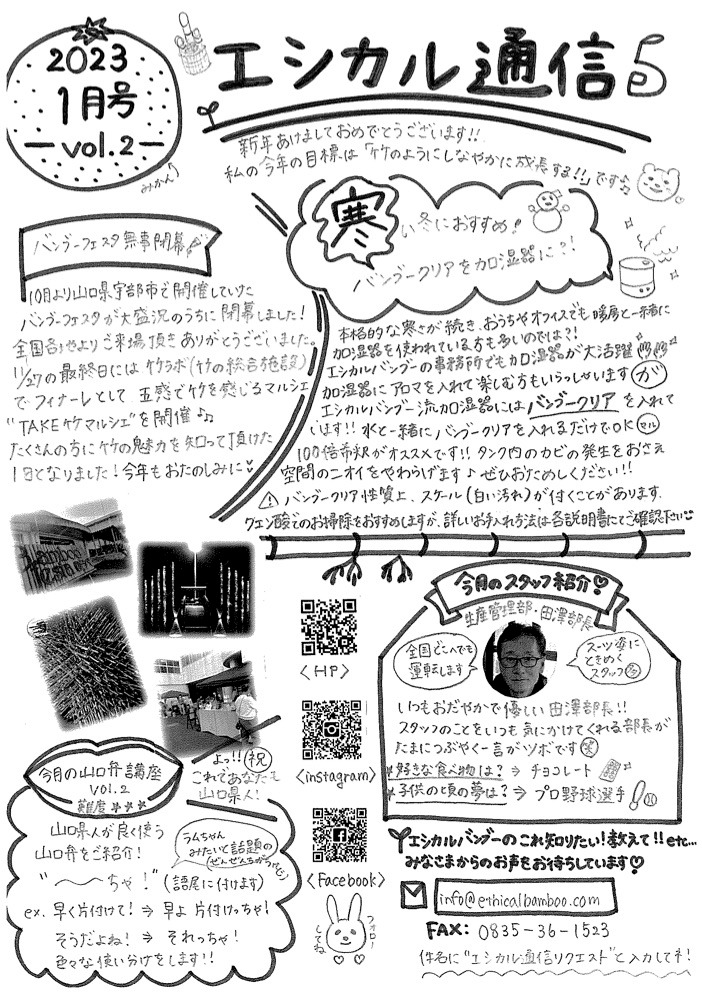 2023
1月号
vol.2
みかん
エシカル通信
新年あけましておめでとうございます!!
私の今年の目標は「竹のようにしなやかに成長する!!」です♪
バンブーフェスタ無事閉幕
10月より山口県宇部市で開催していた
バンブーフェスタが大盛況のうちに閉幕しました!
全国各地よりご来場頂きありがとうございました。
11/27の最終日には竹ラボ(竹の総合施設)
でフィナーレとして 五感で竹を感じるマルシェ
"TAKE竹マルシェ"を開催♪
たくさんの方に竹の魅力を知って頂けた
1日となりました!今年もおたのしみに♥
寒い冬におすすめ!
バンブークリアを加湿器に?!
本格的な寒さが続き、おうちやオフィスでも暖房と一緒に
加湿器を使われている方も多いのでは?!
エシカルバンブーの事務所でも加湿器が大活躍
加湿器にアロマを入れて楽しむ方もいらっしゃいますが
エシカルバンブー流加湿器にはバンブークリアを入れて
います!! 水と一緒にバンブークリアを入れるだけでOKマル
100倍希釈がオススメです!! タンク内のカビの発生をおさえ
空間のニオイをやわらげます♪ ぜひおためしください!!
⚠ バンブークリア性質上、スケール(白い汚れ)が付くことがあります。
クエン酸でのお掃除をおすすめしますが、詳しいお手入れ方法は各説明書にてご確認下さい
<HP>
<instagram>
<Facebook>
フォローしてね
今月のスタッフ紹介♡
生産管理部・田澤部長
全国どこへでも
運転します
スーツ姿に
ときめく
スタッフ多
いつもおだやかで優しい田澤部長!!
スタッフのことをいつも気にかけてくれる部長が
たまにつぶやく一言がツボです笑
好きな食べ物は? ⇒ チョコレート
子供の頃の夢は? ⇒ プロ野球選手
よっ!! 祝
これであなたも
山口県人!
今月の山口弁講座
vol.2
難度
山口県人が良く使う
山口弁をご紹介!
ラムちゃん
みたいと話題の
"〜〜ちゃ!"(語尾に付けます)
ex. 早く片付けて! ⇒ 早よ 片付けっちゃ!
そうだよね! ⇒ それっちゃ!
色々な使い分けをします!!
エシカルバンブーのこれ知りたい!教えて!!etc...
みなさまからのお声をお待ちしています♡
info@ethicalbamboo.com
FAX: 0835-36-1523
件名に"エシカル通信リクエスト"と入力してネ!